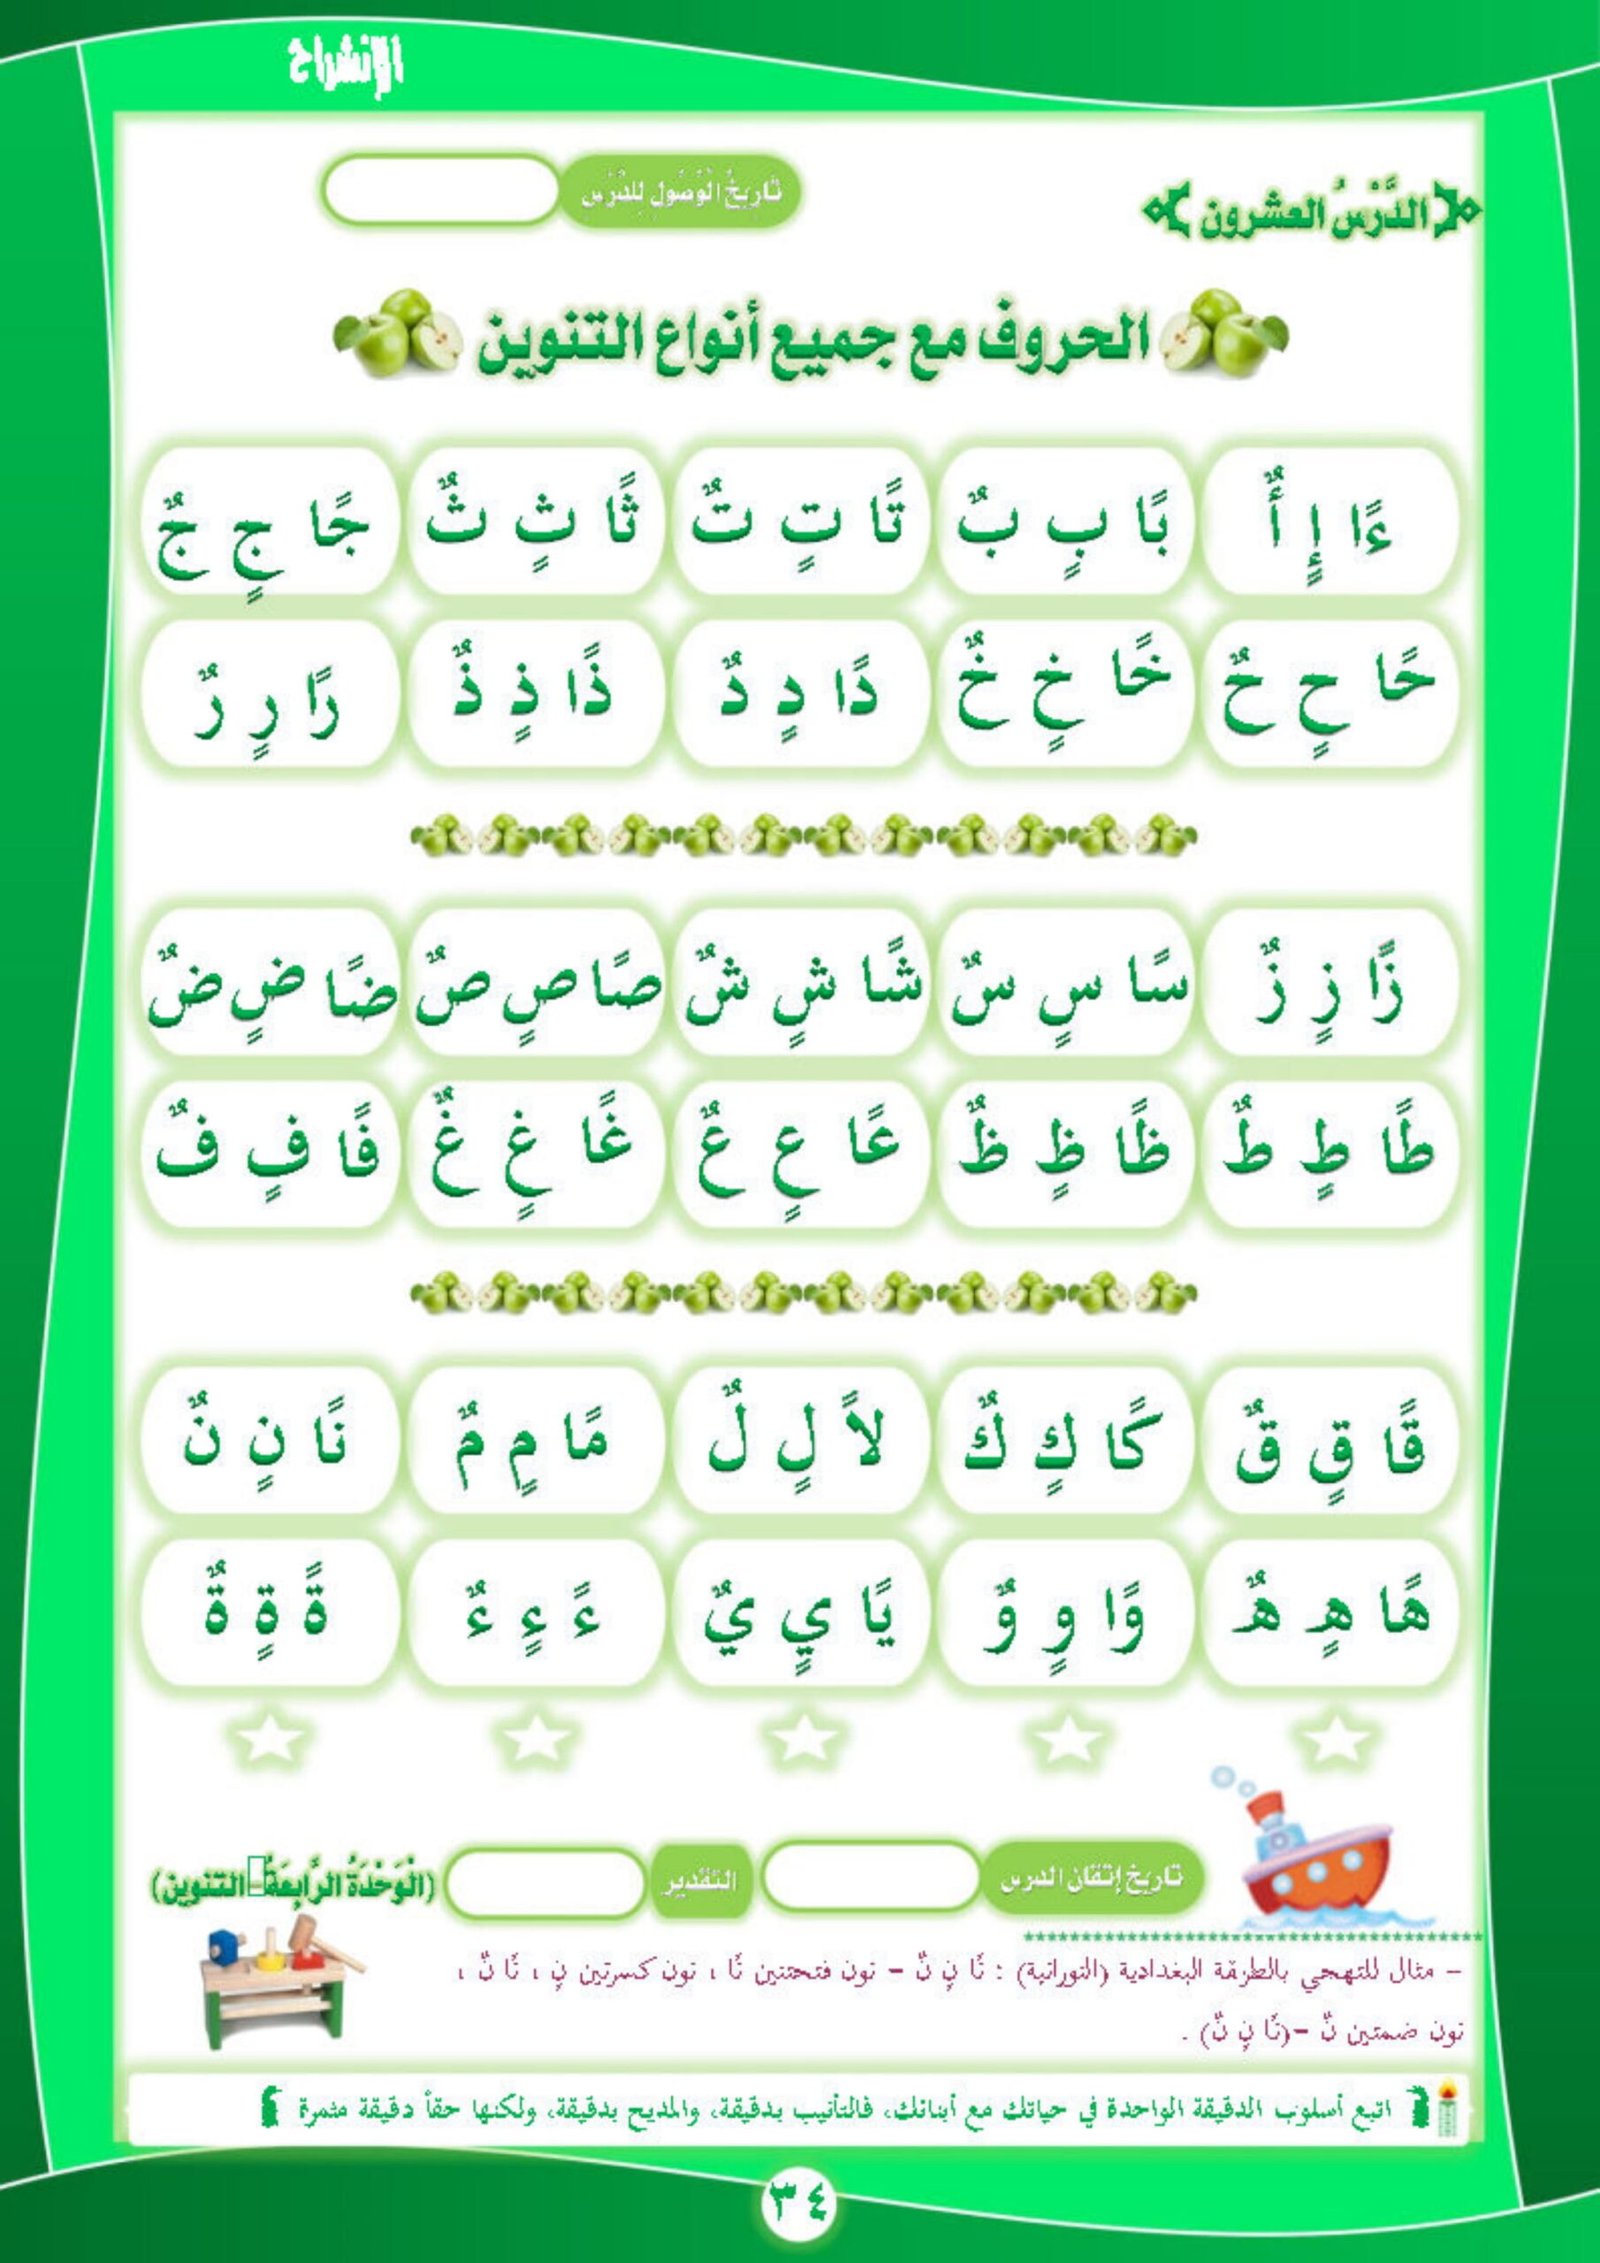 الإنشراح
الدَّرْسُ العشرون
تَارِيخُ الْوُصُولِ لِلدَّرْسِ
الحروف مع جميع أنواع التنوين
ءًا إٍ أٌ بًا بٍ بٌ تًا تٍ تٌ ثًا ثٍ ثٌ جًا جٍ جٌ
حًا حٍ حٌ خًا خٍ خٌ دًا دٍ دٌ ذًا ذٍ ذٌ رًا رٍ رٌ
زًا زٍ زٌ سًا سٍ سٌ شًا شٍ شٌ صًا صٍ صٌ ضًا ضٍ ضٌ
طًا طٍ طٌ ظًا ظٍ ظٌ عًا عٍ عٌ غًا غٍ غٌ فًا فٍ فٌ
قًا قٍ قٌ كًا كٍ كٌ لاً لٍ لٌ مًا مٍ مٌ نًا نٍ نٌ
هًا هٍ هٌ وًا وٍ وٌ يًا يٍ يٌ ءً ءٍ ءٌ ةً ةٍ ةٌ
تاريخ إتقان الدرس التقدير (الْوَحْدَةُ الرَّابِعَةُ التنوين)
– مثال للتهجي بالطريقة البغدادية (النورانية) : نًا نٍ نٌ – نون فتحتين نًا ، نون كسرتين نٍ ، نًا نٌ ،
نون ضمتين نٌ –(نًا نٍ نٌ) .
اتبع أسلوب الدقيقة الواحدة في حياتك مع أبنائك، فالتأنيب بدقيقة، والمديح بدقيقة، ولكنها حقاً دقيقة مثمرة
٣٤